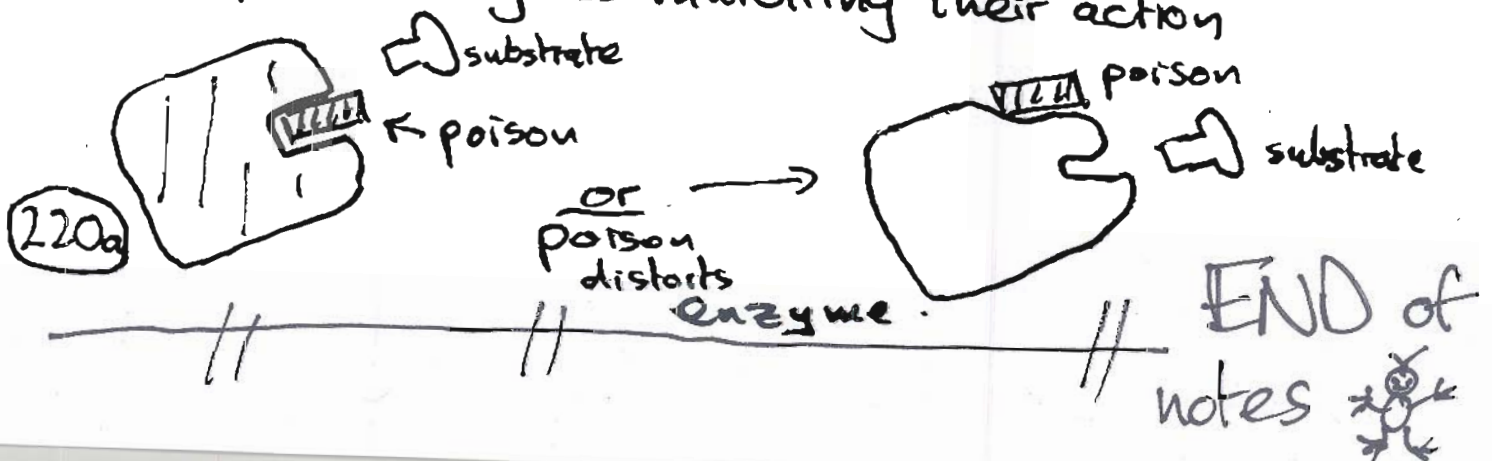 their action
substrate
poison
220a
or
poison
distorts
enzyme.
poison
substrate
END of
notes